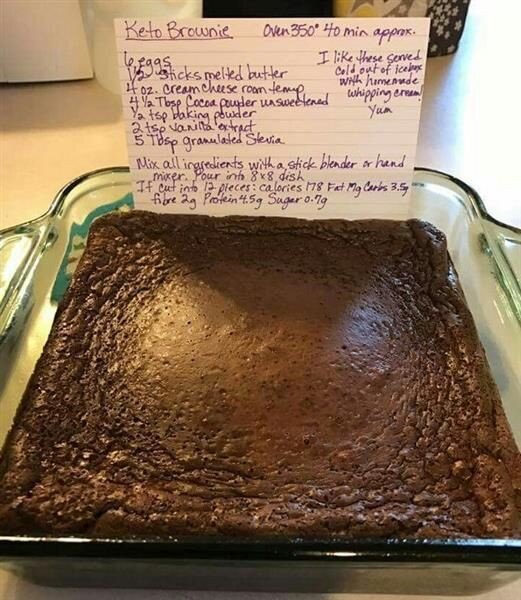 Keto Brownie Oven 350° 40 min approx.
6 eggs
1½ sticks melted butter
4 oz. cream cheese room temp
4½ Tbsp Cocoa powder unsweetened
½ tsp baking powder
2 tsp vanilla extract
5 Tbsp granulated Stevia
I like these served
cold out of icebox
with homemade
whipping cream!
Yum
Mix all ingredients with a stick blender or hand
mixer. Pour into 8x8 dish
If cut into 12 pieces: calories 178 Fat 17g Carbs 3.5g
fibre 2g Protein 4.5g Sugar 0.7g